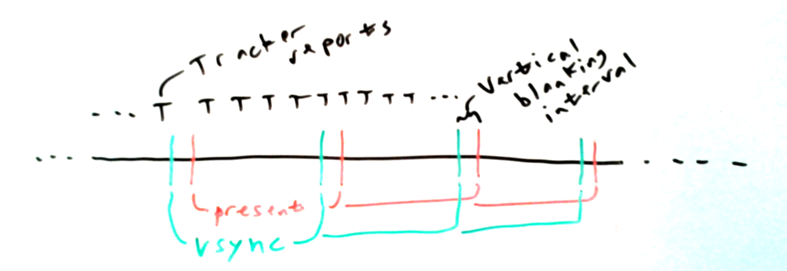 Tracker
reports
... T T T T T T T T T T ...
vertical
blanking
interval
present
vsync